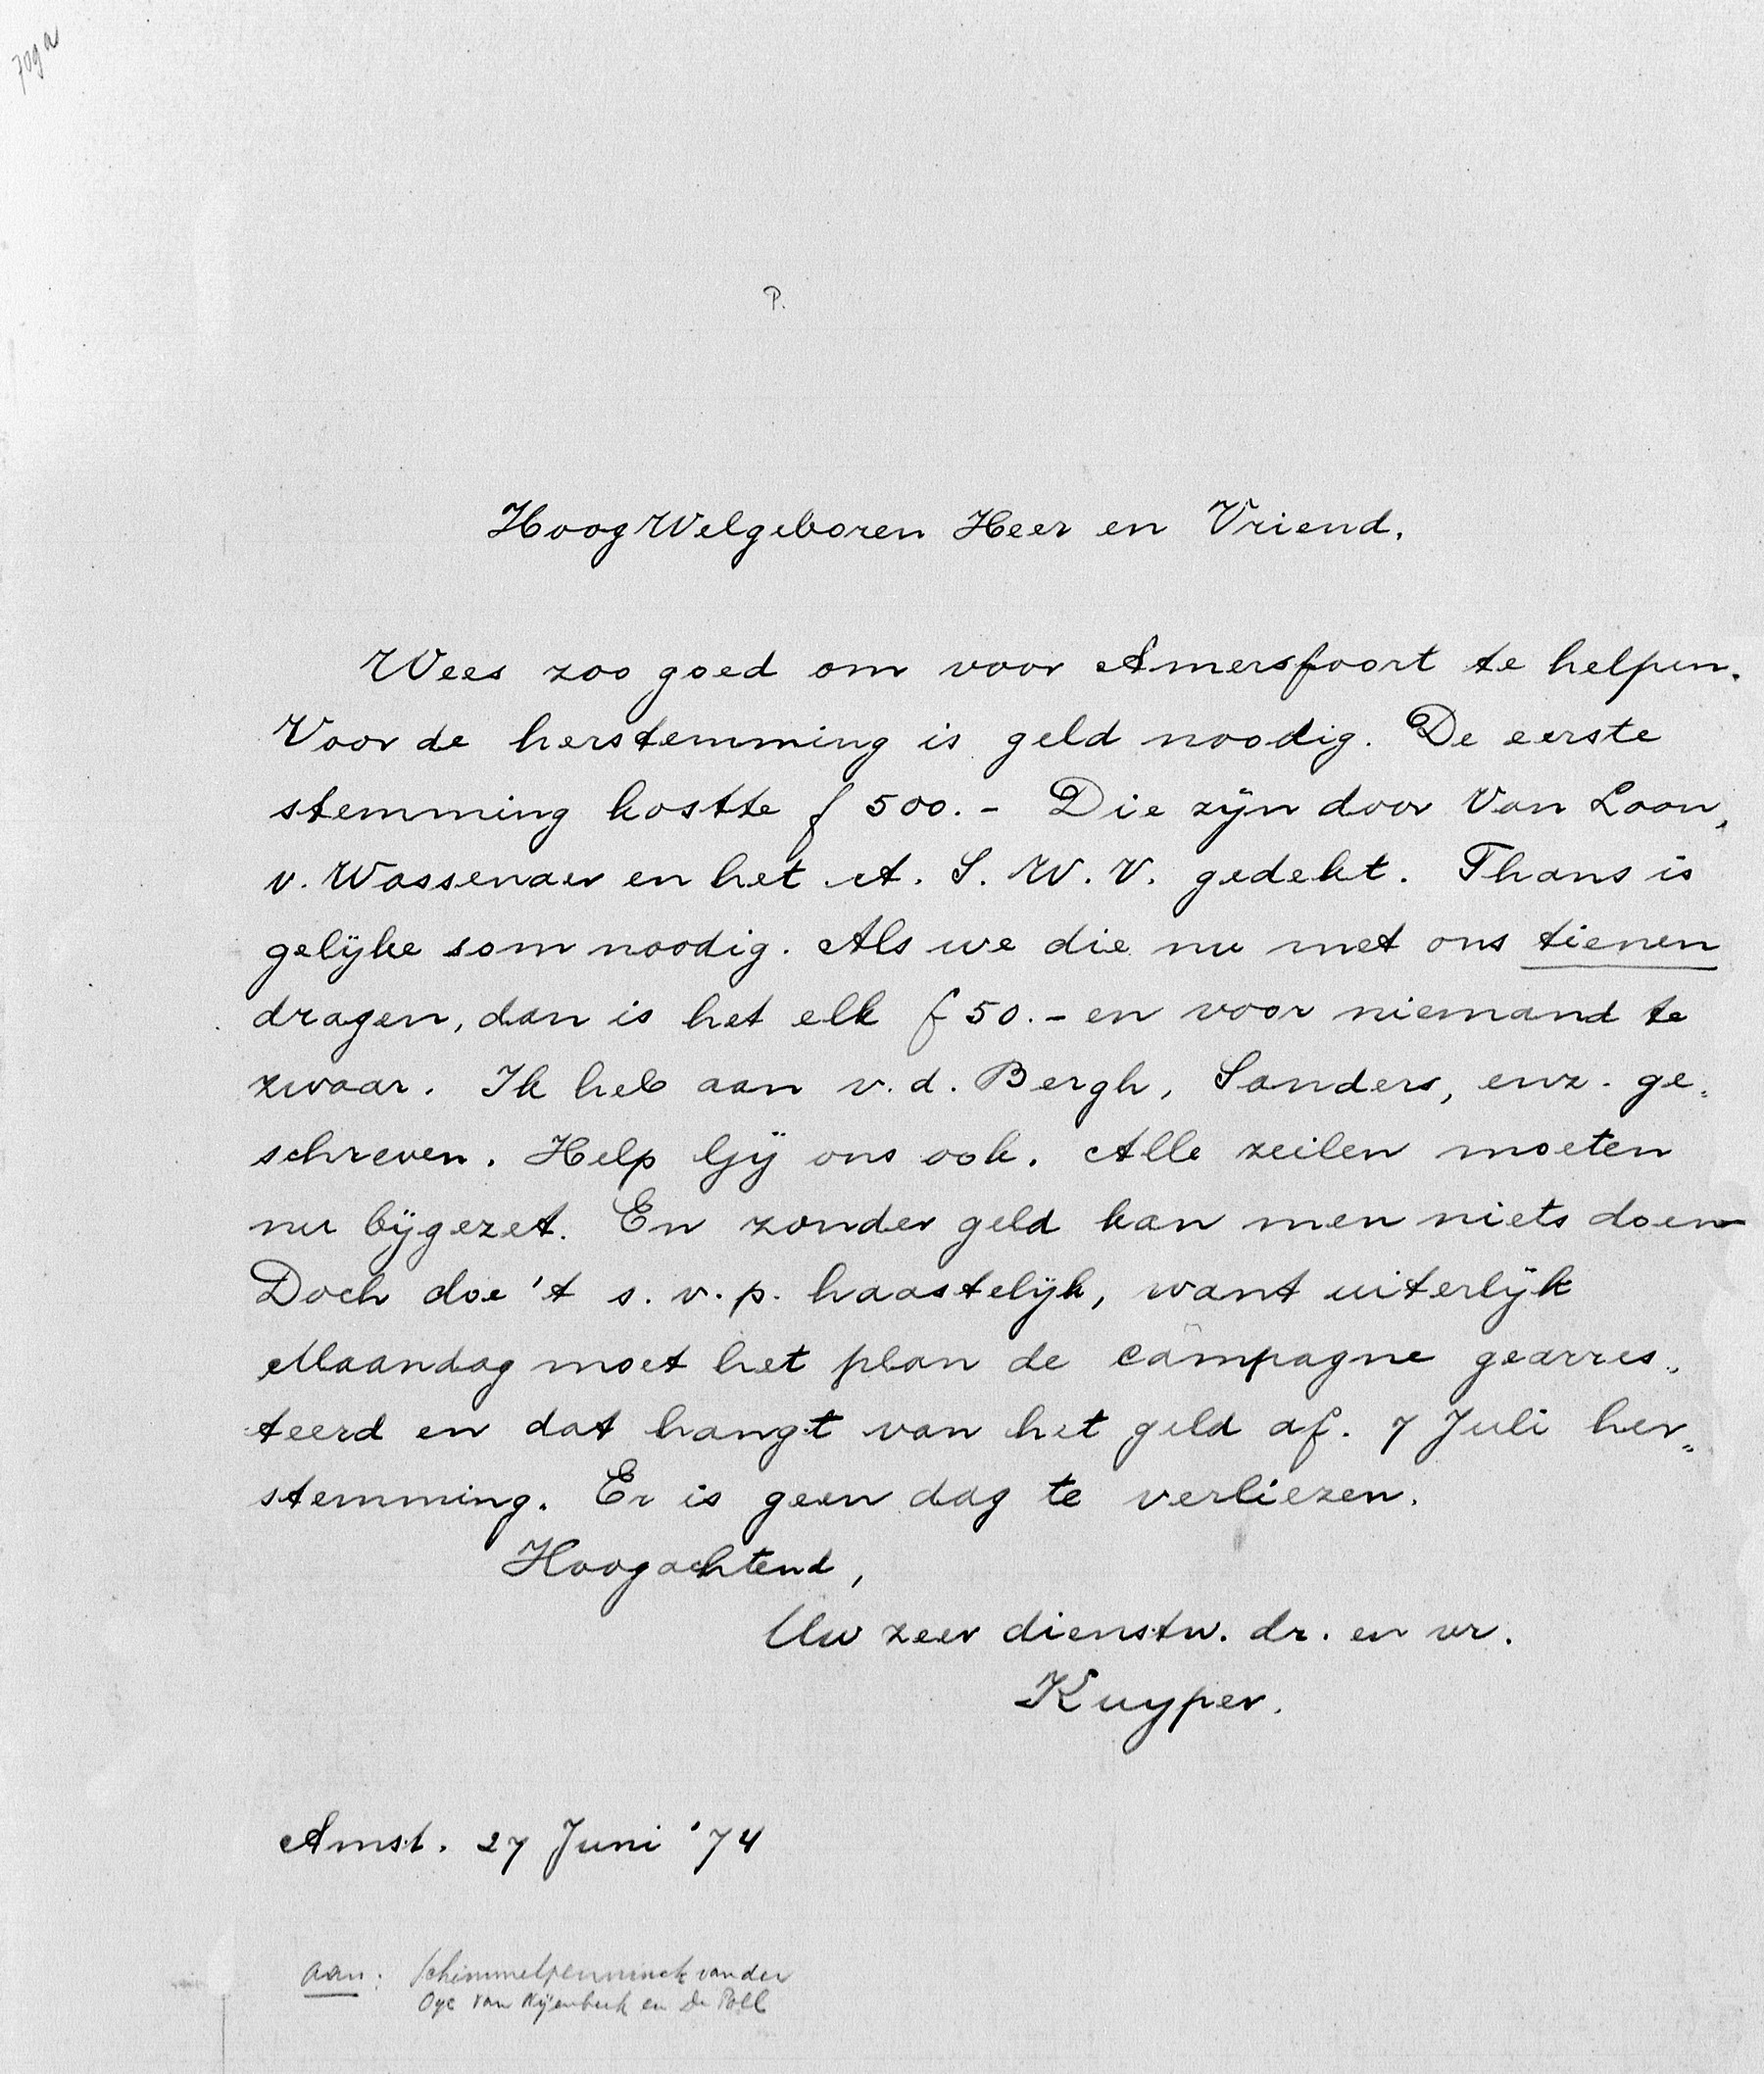 709a
P.
HoogWelgeboren Heer en Vriend.
Wees zoo goed om voor Amersfoort te helpen.
Voor de herstemming is geld noodig. De eerste
stemming kostte f 500.- Die zijn door Van Loon,
v. Wassenaer en het A. S. W. V. gedekt. Thans is
gelijke som noodig. Als we die nu met ons tienen
dragen, dan is het elk f 50.- en voor niemand te
zwaar. Ik heb aan v. d. Bergh, Sanders, enz. ge„
schreven. Help Gij ons ook. Alle zeilen moeten
nu bijgezet. En zonder geld kan men niets doen
Doch doe 't s. v. p. haastelijk, want uiterlijk
Maandag moet het plan de campagne gearres„
teerd en dat hangt van het geld af. 7 Juli her„
stemming. Er is geen dag te verliezen.
Hoogachtend,
Uw zeer dienstw. dr. en vr.
Kuyper.
Amst. 27 Juni '74
aan: Schimmelpenninck van der
Oye van Nijenbeek en De Poll